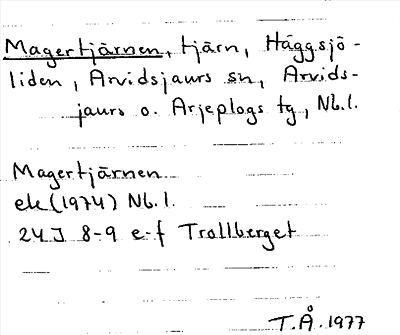 Magertjärnen, tjärn, Häggsjö-
liden, Arvidsjaurs sn, Arvids-
jaurs o. Arjeplogs tg, Nb.l.
Magertjärnen
ek (1974) Nb.l.
24J 8-9 e-f Trollberget
T.Å. 1977